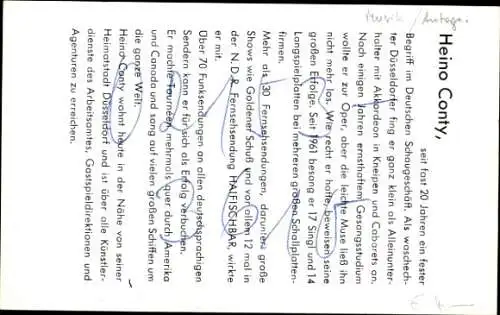 Musik /
Heino Conty,
seit fast 20 Jahren ein fester
Begriff im Deutschen Schaugeschäft. Als waschech-
ter Düsseldorfer fing er ganz klein als Alleinunter-
halter mit Akkordeon in Kneipen und Cabarets an.
Nach einigen Jahren ernsthaftem Gesangsstudium
wollte er zur Oper, aber die leichte Muse ließ ihn
nicht mehr los. Wie recht er hatte, beweisen seine
großen Erfolge. Seit 1961 besang er 17 Singl und 14
Langspielplatten bei mehreren großen Schallplatten-
firmen.
Mehr als 130 Fernsehsendungen, darunter große
Shows wie Goldener Schuß und vor allem 12 mal in
der N.D.R. Fernsehsendung HAIFISCHBAR, wirkte
er mit.
Über 70 Funksendungen an allen deutschsprachigen
Sendern kann er für sich als Erfolg verbuchen.
Er machte Tourneen mehrmals quer durch Amerika
und Canada und sang auf vielen großen Schiffen um
die ganze Welt.
Heino Conty wohnt heute in der Nähe von seiner
Heimatstadt Düsseldorf und ist über alle Künstler-
dienste des Arbeitsamtes, Gastspieldirektionen und
Agenturen zu erreichen.